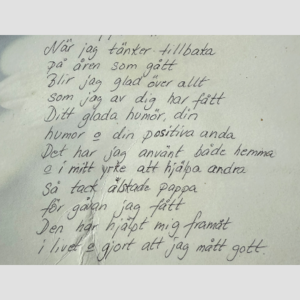 När jag tänker tillbaka
på åren som gått
Blir jag glad över allt
som jag av dig har fått
Ditt glada humör, din
humor o din positiva anda
Det har jag använt både hemma
o i mitt yrke att hjälpa andra
Så tack älskade pappa
för gåvan jag fått
Den har hjälpt mig framåt
i livet o gjort att jag mått gott.